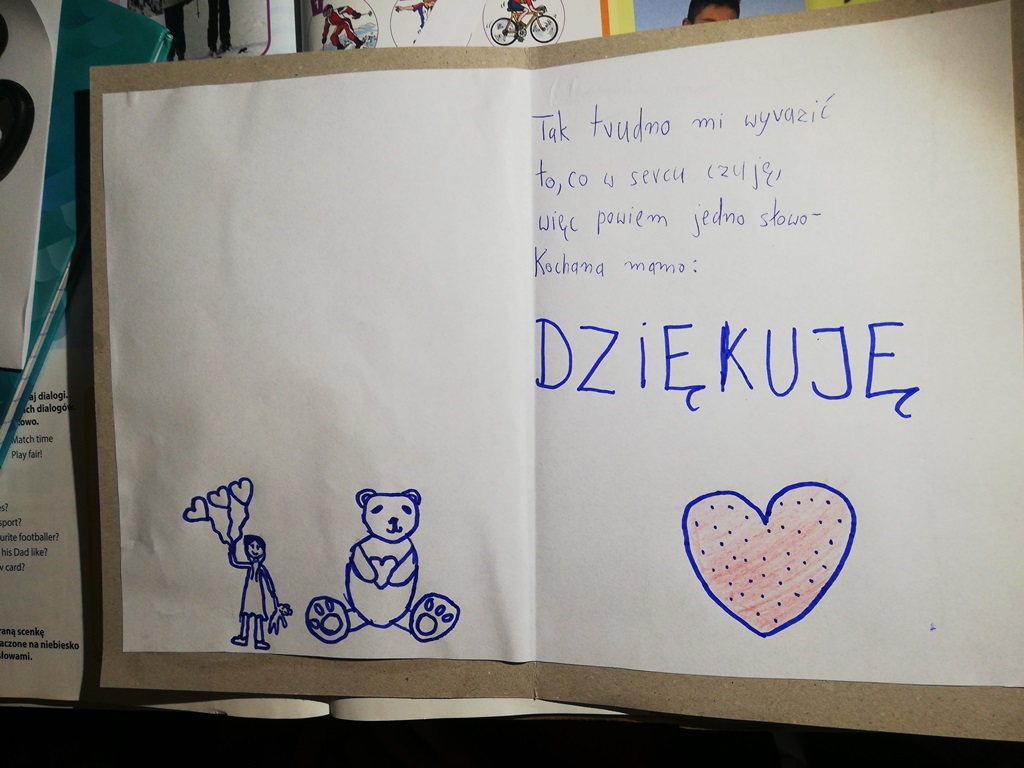 Tak trudno mi wyrazić
to, co w sercu czuję,
więc powiem jedno słowo-
Kochana mamo:
DZIĘKUJĘ
aj dialogi.
ich dialogów.
owo.
Match time
Play fair!
es?
sport?
urite footballer?
his Dad like?
w card?
raną scenkę
aczone na niebiesko
słowami.